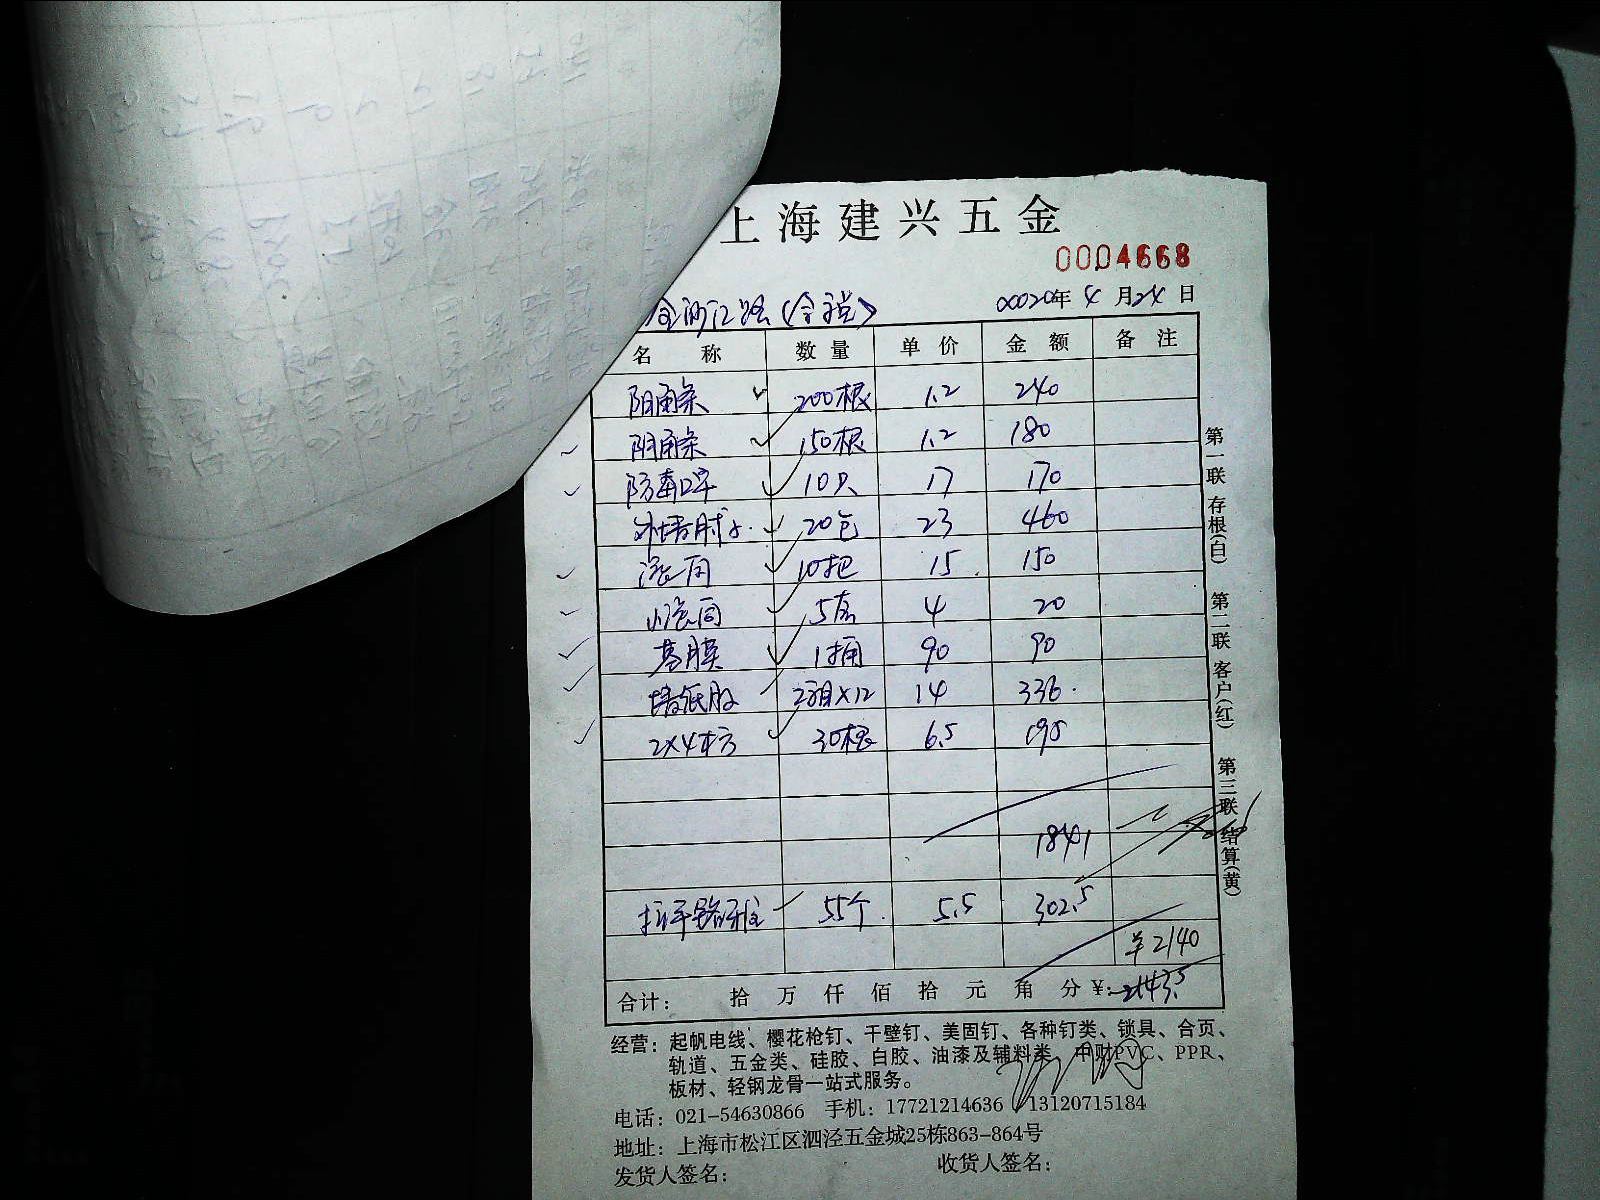 上海建兴五金
0004668
金沙江路(含税) 2020年4月24日
名 称 数量 单价 金额 备注
阴角条 200根 1.2 240
阴角条 150根 1.2 180
防毒口罩 10只 17 170
20包 23 460
滚筒 10把 15 150
小滚筒 5套 4 20
基膜 1桶 90 90
墙纸胶 2箱×12 14 336.
2×4木方 30根 6.5 195
1841
55个 5.5 302.5
¥2140
合计: 拾 万 仟 佰 拾 元 角 分 ¥: 2143.5
第一联 存根(白) 第二联 客户(红) 第三联 结算(黄)
经营: 起帆电线、樱花枪钉、干壁钉、美固钉、各种钉类、锁具、合页、
轨道、五金类、硅胶、白胶、油漆及辅料类、中财PVC、PPR、
板材、轻钢龙骨一站式服务。
电话: 021-54630866 手机: 17721214636 13120715184
地址: 上海市松江区泗泾五金城25栋863-864号
发货人签名: 收货人签名: